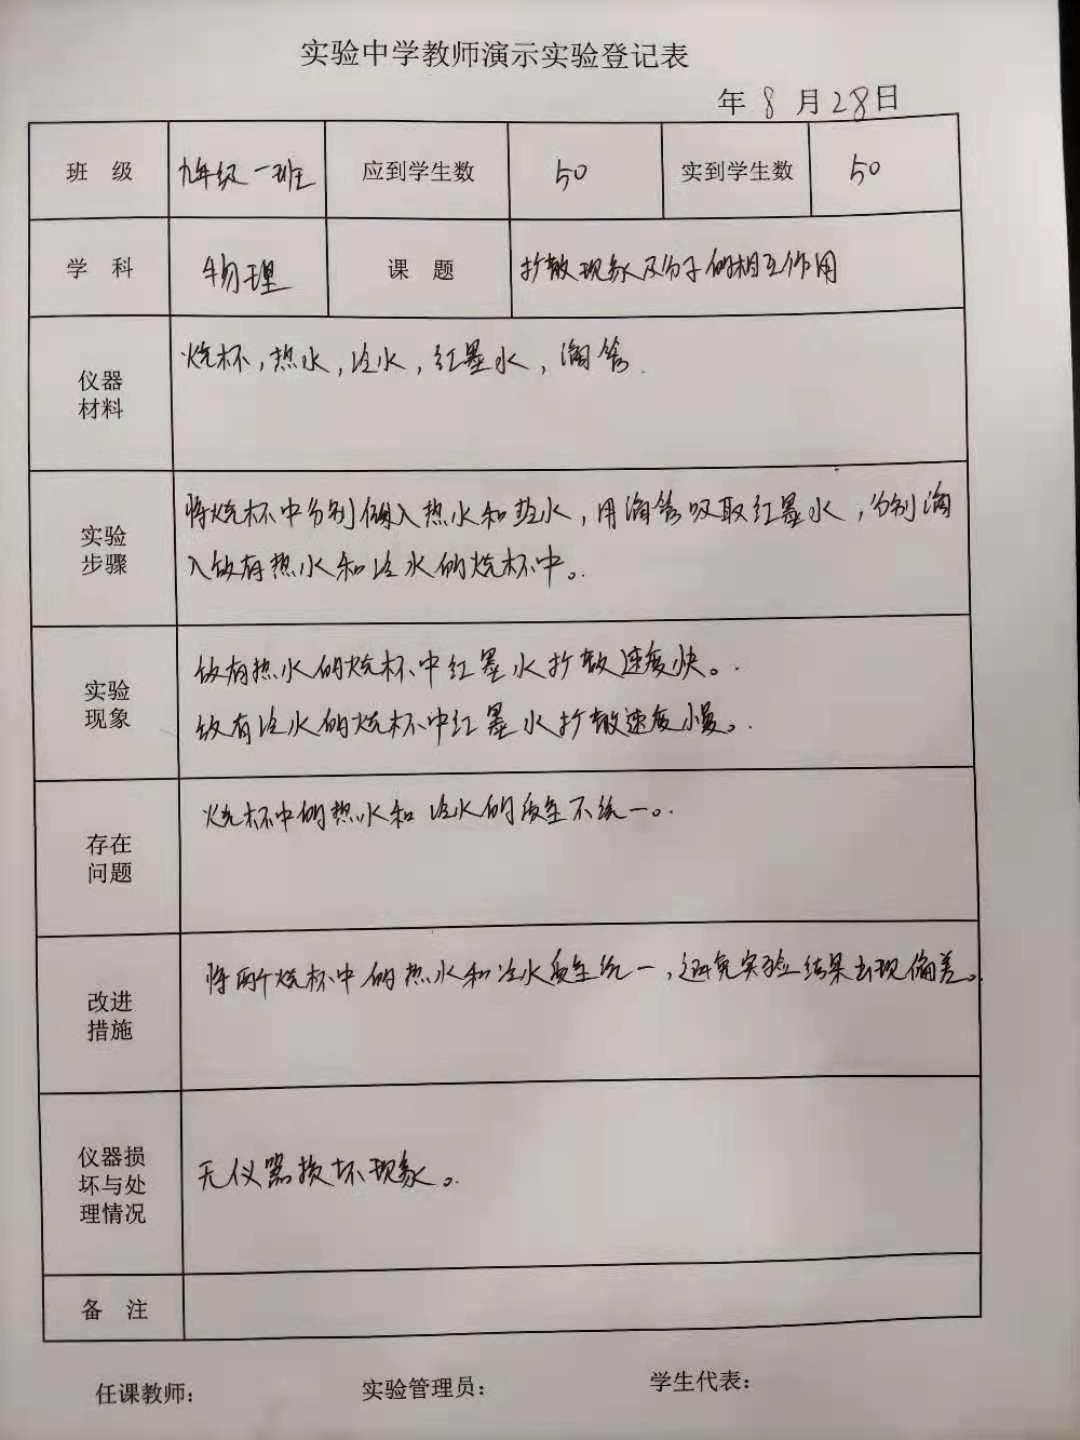 实验中学教师演示实验登记表
年 8 月 28日
班 级 九年级一班 应到学生数 50 实到学生数 50
学 科 物理 课 题 扩散现象及分子的相互作用
仪器
材料
烧杯，热水，冷水，红墨水，滴管.
实验
步骤
将烧杯中分别倒入热水和热水，用滴管吸取红墨水，分别滴
入放有热水和冷水的烧杯中。
实验
现象
放有热水的烧杯中红墨水扩散速度快。
放有冷水的烧杯中红墨水扩散速度慢。
存在
问题
烧杯中的热水和冷水的质量不统一。
改进
措施
将两个烧杯中的热水和冷水质量统一，避免实验结果出现偏差。
仪器损
坏与处
理情况
无仪器损坏现象。
备 注
任课教师： 实验管理员： 学生代表：